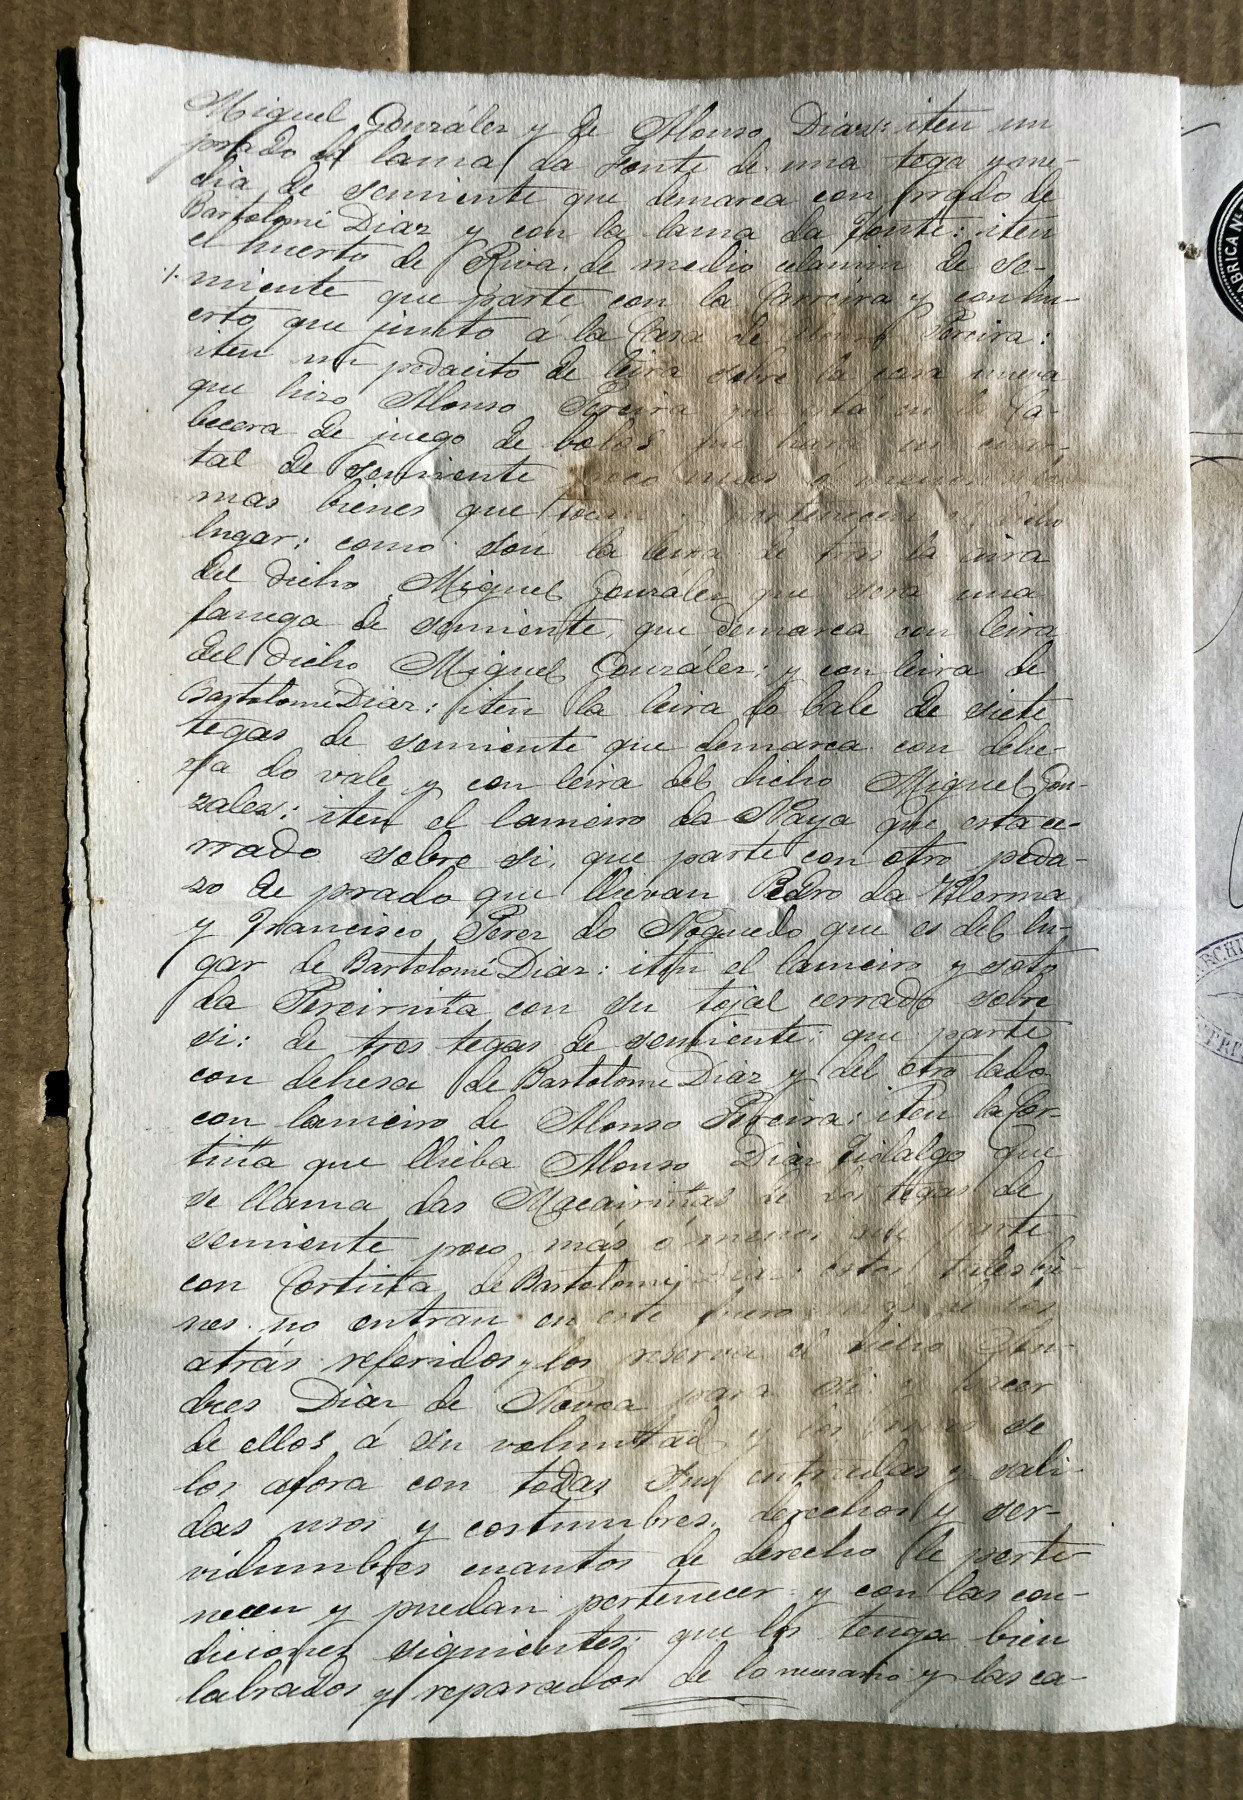 Miguel González y de Alonso Diaz: iten un
prado de lama da Fonte de una tega y me-
dia de semiente que demarca con prado de
Bartolomé Diaz y con la lama da Fonte: iten
el huerto de Riva de medio celamin de se-
miente que parte con la Carreira y con hu-
erto que junto á la Casa de Alonso Pereira:
iten un pedacito de leira sobre la casa nueva
que hizo Alonso Pereira que está en la Ca-
becera de juego de bolos que hará un cuar-
tal de semiente poco mas o menos
mas bienes que tocan y pertenecen a dicho
lugar: como son la leira de tras la aira
del dicho Miguel González que sera una
fanega de semiente, que demarca con leira
del dicho Miguel González; y con leira de
Bartolome Diaz: iten la leira do Bale de siete
tegas de semiente que demarca con dehe-
sa do vale y con leira del dicho Miguel Gon-
zalez: iten el lameiro da Naya que esta ce-
rrado sobre si, que parte con otro peda-
zo de prado que llevan Pedro da
y Francisco Perez do Noguedo que es del lu-
gar de Bartolomé Diaz: iten el lameiro y soto
da Pereiriña con su tojal cerrado sobre
si: de tres tegas de semiente: que parte
con dehesa de Bartolome Diaz y del otro lado
con lameiro de Alonso Pereira: iten la Cor-
tiña que llieba Alonso Diaz Fidalgo que
se llama das Macairiñas de dos tegas de
semiente poco más ó menos que parte
con Cortiña de Bartolomé Diaz: estos tales bi-
nes no entran en este fuero mas de los
atrás referidos y los reserva el dicho An-
dres Diaz de Novoa para si y hacer
de ellos á su voluntad y los mas se
los afora con todas sus entradas y sali-
das usos y costumbres, derechos y ser-
vidumbres cuantos de derecho le perte-
necen y puedan pertenecer y con las con-
diciones siguientes: que los tenga bien
labrados y reparados de lo necesario y las ca-
FABRICA N
ARCHI